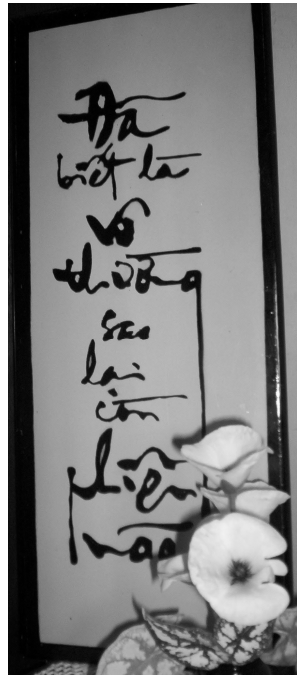 Đã
biết là
vô
thường
sao
lại
còn
phiền
não